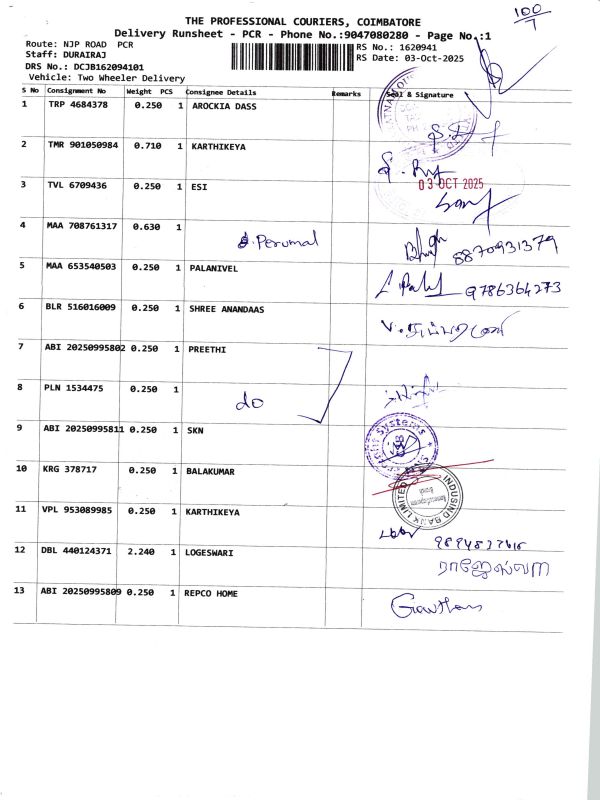 100
7
THE PROFESSIONAL COURIERS, COIMBATORE
Delivery Runsheet - PCR - Phone No.:9047080280 - Page No.:1
Route: NJP ROAD PCR
Staff: DURAIRAJ
DRS No.: DCJB162094101
Vehicle: Two Wheeler Delivery
RS No.: 1620941
RS Date: 03-Oct-2025
S No Consignment No Weight PCS Consignee Details Remarks Seal & Signature
1 TRP 4684378 0.250 1 AROCKIA DASS
2 TMR 901050984 0.710 1 KARTHIKEYA
03 OCT 2025
3 TVL 6709436 0.250 1 ESI
4 MAA 708761317 0.630 1 S. Perumal 8870931379
5 MAA 653540503 0.250 1 PALANIVEL 9786364273
6 BLR 516016009 0.250 1 SHREE ANANDAAS
7 ABI 20250995802 0.250 1 PREETHI
8 PLN 1534475 0.250 1 do
9 ABI 20250995811 0.250 1 SKN
10 KRG 378717 0.250 1 BALAKUMAR
INDUSIND BANK LIMITED
11 VPL 953089985 0.250 1 KARTHIKEYA
12 DBL 440124371 2.240 1 LOGESWARI
13 ABI 20250995809 0.250 1 REPCO HOME Gowtham